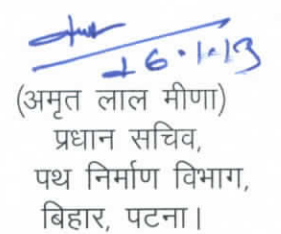 16.1.13
(अमृत लाल मीणा)
प्रधान सचिव,
पथ निर्माण विभाग,
बिहार, पटना।